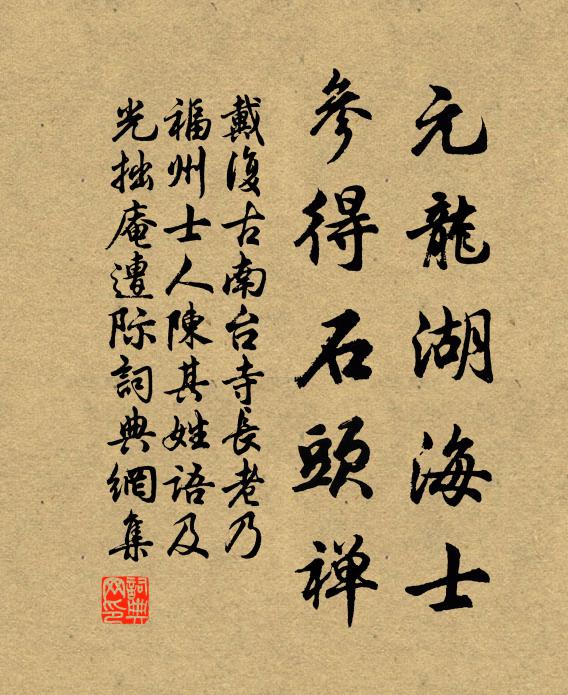 元龍湖海士
參得石頭禅
戴復古南台寺長老乃
福州士人陳其姓語及
光拙庵遭際詞典網集
詞典网印